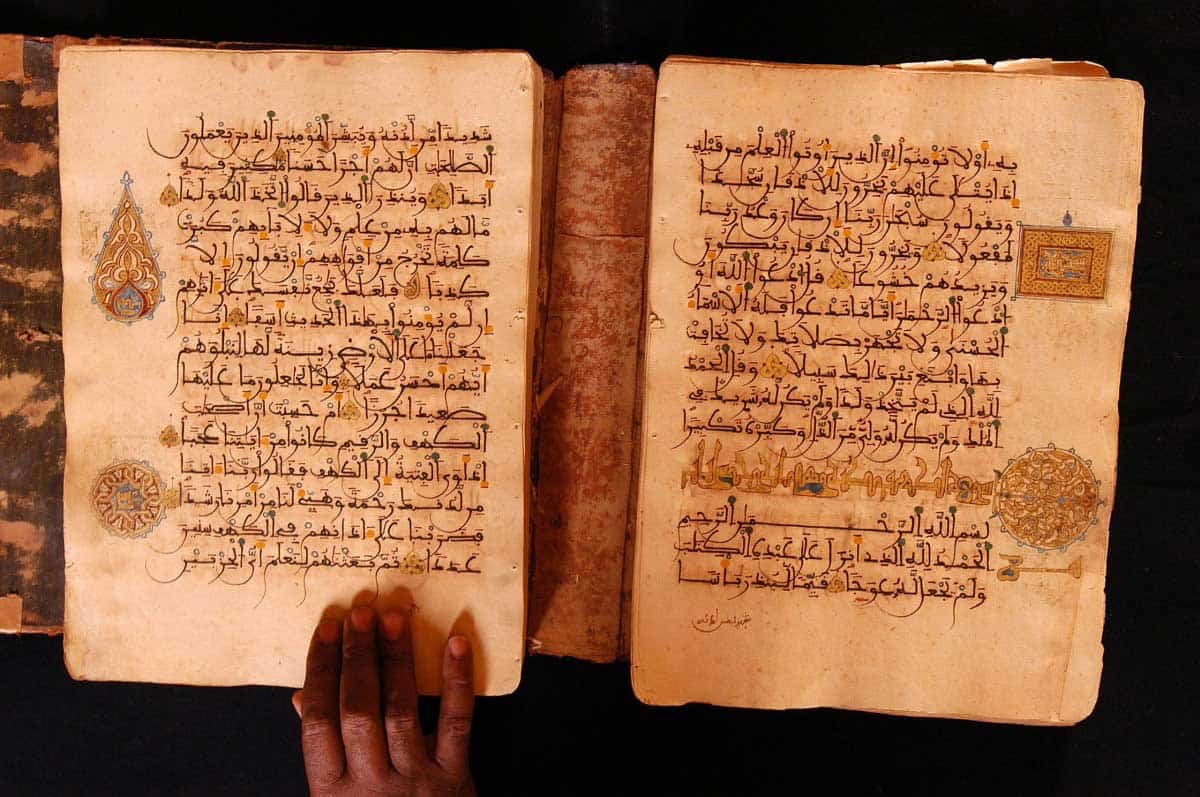 به أو لا تؤمنوا إن الذين أوتوا العلم من قبله
إذا يتلى عليهم يخرون للأذقان سجدا
ويقولون سبحن ربنا إن كان وعد ربنا
لمفعولا ويخرون للأذقان يبكون
ويزيدهم خشوعا قل ادعوا الله أو
ادعوا الرحمن أيا ما تدعوا فله الأسماء
الحسنى ولا تجهر بصلاتك ولا تخافت
بها وابتغ بين ذلك سبيلا وقل الحمد
لله الذي لم يتخذ ولدا ولم يكن له شريك في
الملك ولم يكن له ولي من الذل وكبره تكبيرا
بسم الله الرحمن الرحيم
الحمد لله الذي أنزل على عبده الكتب
ولم يجعل له عوجا قيما لينذر بأسا
شديدا من لدنه ويبشر المؤمنين الذين يعملون
الصلحت أن لهم أجرا حسنا مكثين فيه
أبدا وينذر الذين قالوا اتخذ الله ولدا
ما لهم به من علم ولا لأبايهم كبرت
كلمة تخرج من أفوههم إن يقولون إلا
كذبا فلعلك بخع نفسك على ءاثرهم
إن لم يؤمنوا بهذا الحديث أسفا إنا
جعلنا ما على الأرض زينة لها لنبلوهم
أيهم أحسن عملا وإنا لجعلون ما عليها
صعيدا جرزا أم حسبت أن أصحب
الكهف والرقيم كانوا من ءايتنا عجبا
إذ أوى الفتية إلى الكهف فقالوا ربنا ءاتنا
من لدنك رحمة وهيئ لنا من أمرنا رشدا
فضربنا على ءاذنهم في الكهف سنين
عددا ثم بعثنهم لنعلم أي الحزبين